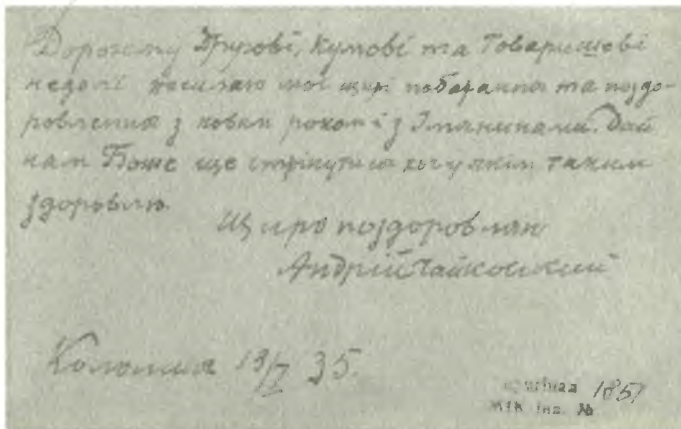 Дорогому Другові, Кумові та Товаришеві
недолі посилаю мої щирі побажання та поздо-
ровлення з новим роком і з Імянинами. Дай
нам Боже ще стрінутися хоч у якім таким
здоровлю.
Щиро поздоровляю
Андрій Чайковский
Коломия 19/I 35.
1857
інв. №